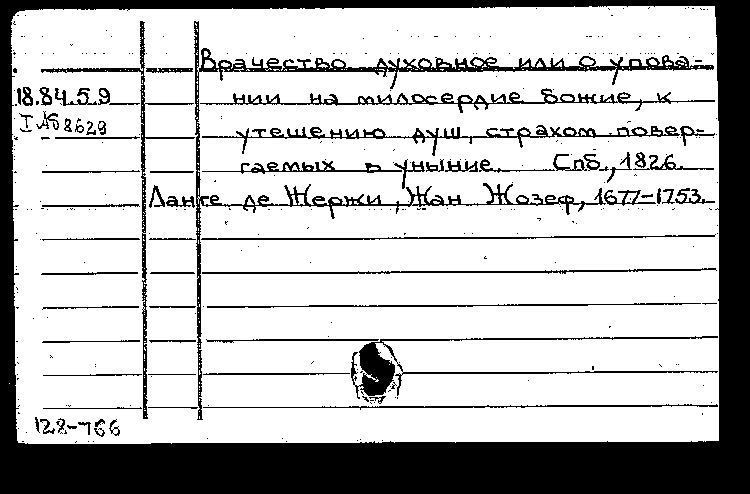 Врачество духовное или о упова-
18.84.5.9 нии на милосердие божие, к
I Аб 8629 утешению душ, страхом повер-
гаемых в уныние. Спб., 1826.
Ланге де Жержи, Жан Жозеф, 1677-1753.
128-766